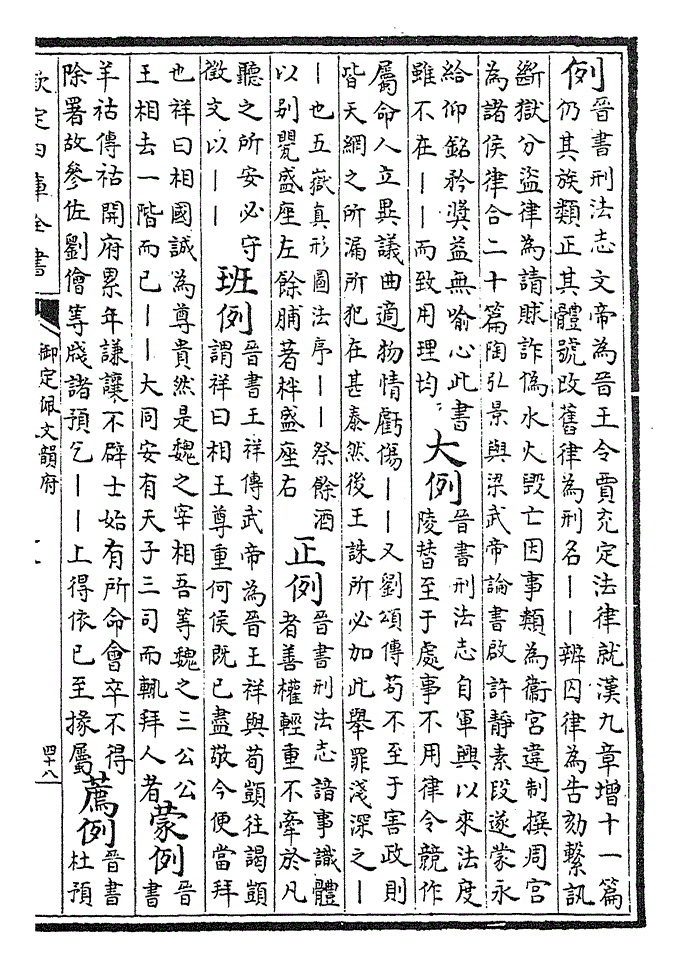 例
晉書刑法志文帝為晉王令賈充定法律就漢九章增十一篇
仍其族類正其體號改舊律為刑名——辨囚律為告劾繫訊
斷獄分盜律為請賕詐偽水火毀亡因事類為衞宮違制撰周官
為諸侯律合二十篇陶弘景與梁武帝論書啟許靜素段遂蒙永
給仰銘矜奬益無喻心此書
雖不在——而致用理均
大例
晉書刑法志自軍興以來法度
陵替至于處事不用律令競作
屬命人立異議曲適物情虧傷——又劉頌傳苟不至于害政則
皆天網之所漏所犯在甚泰然後王誅所必加此舉罪淺深之—
—也五嶽真形圖法序——祭餘酒
以别甖盛座左餘脯著柈盛座右
正例
晉書刑法志諳事識體
者善權輕重不牽於凡
聽之所安必守
徵文以——
班例
晉書王祥傳武帝為晉王祥與荀顗往謁顗
謂祥曰相王尊重何侯既已盡敬今便當拜
也祥曰相國誠為尊貴然是魏之宰相吾等魏之三公公
王相去一階而已——大同安有天子三司而輒拜人者
蒙例
晉
書
羊祜傳祜開府累年謙讓不辟士始有所命會卒不得
除署故參佐劉儈等牋諸預乞——上得依已至掾屬
薦例
晉書
杜預
欽定四庫全書
御定佩文韻府
四十八